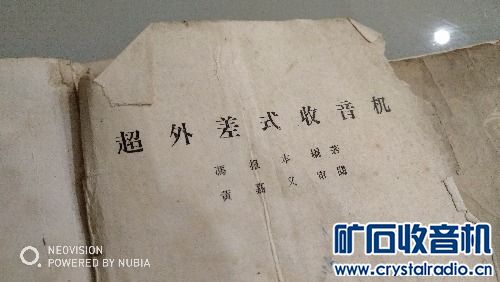 超外差式收音机
馮报本编著
黃嘉文审閱
NEOVISION
POWERED BY NUBIA
矿石收音机
www.crystalradio.cn